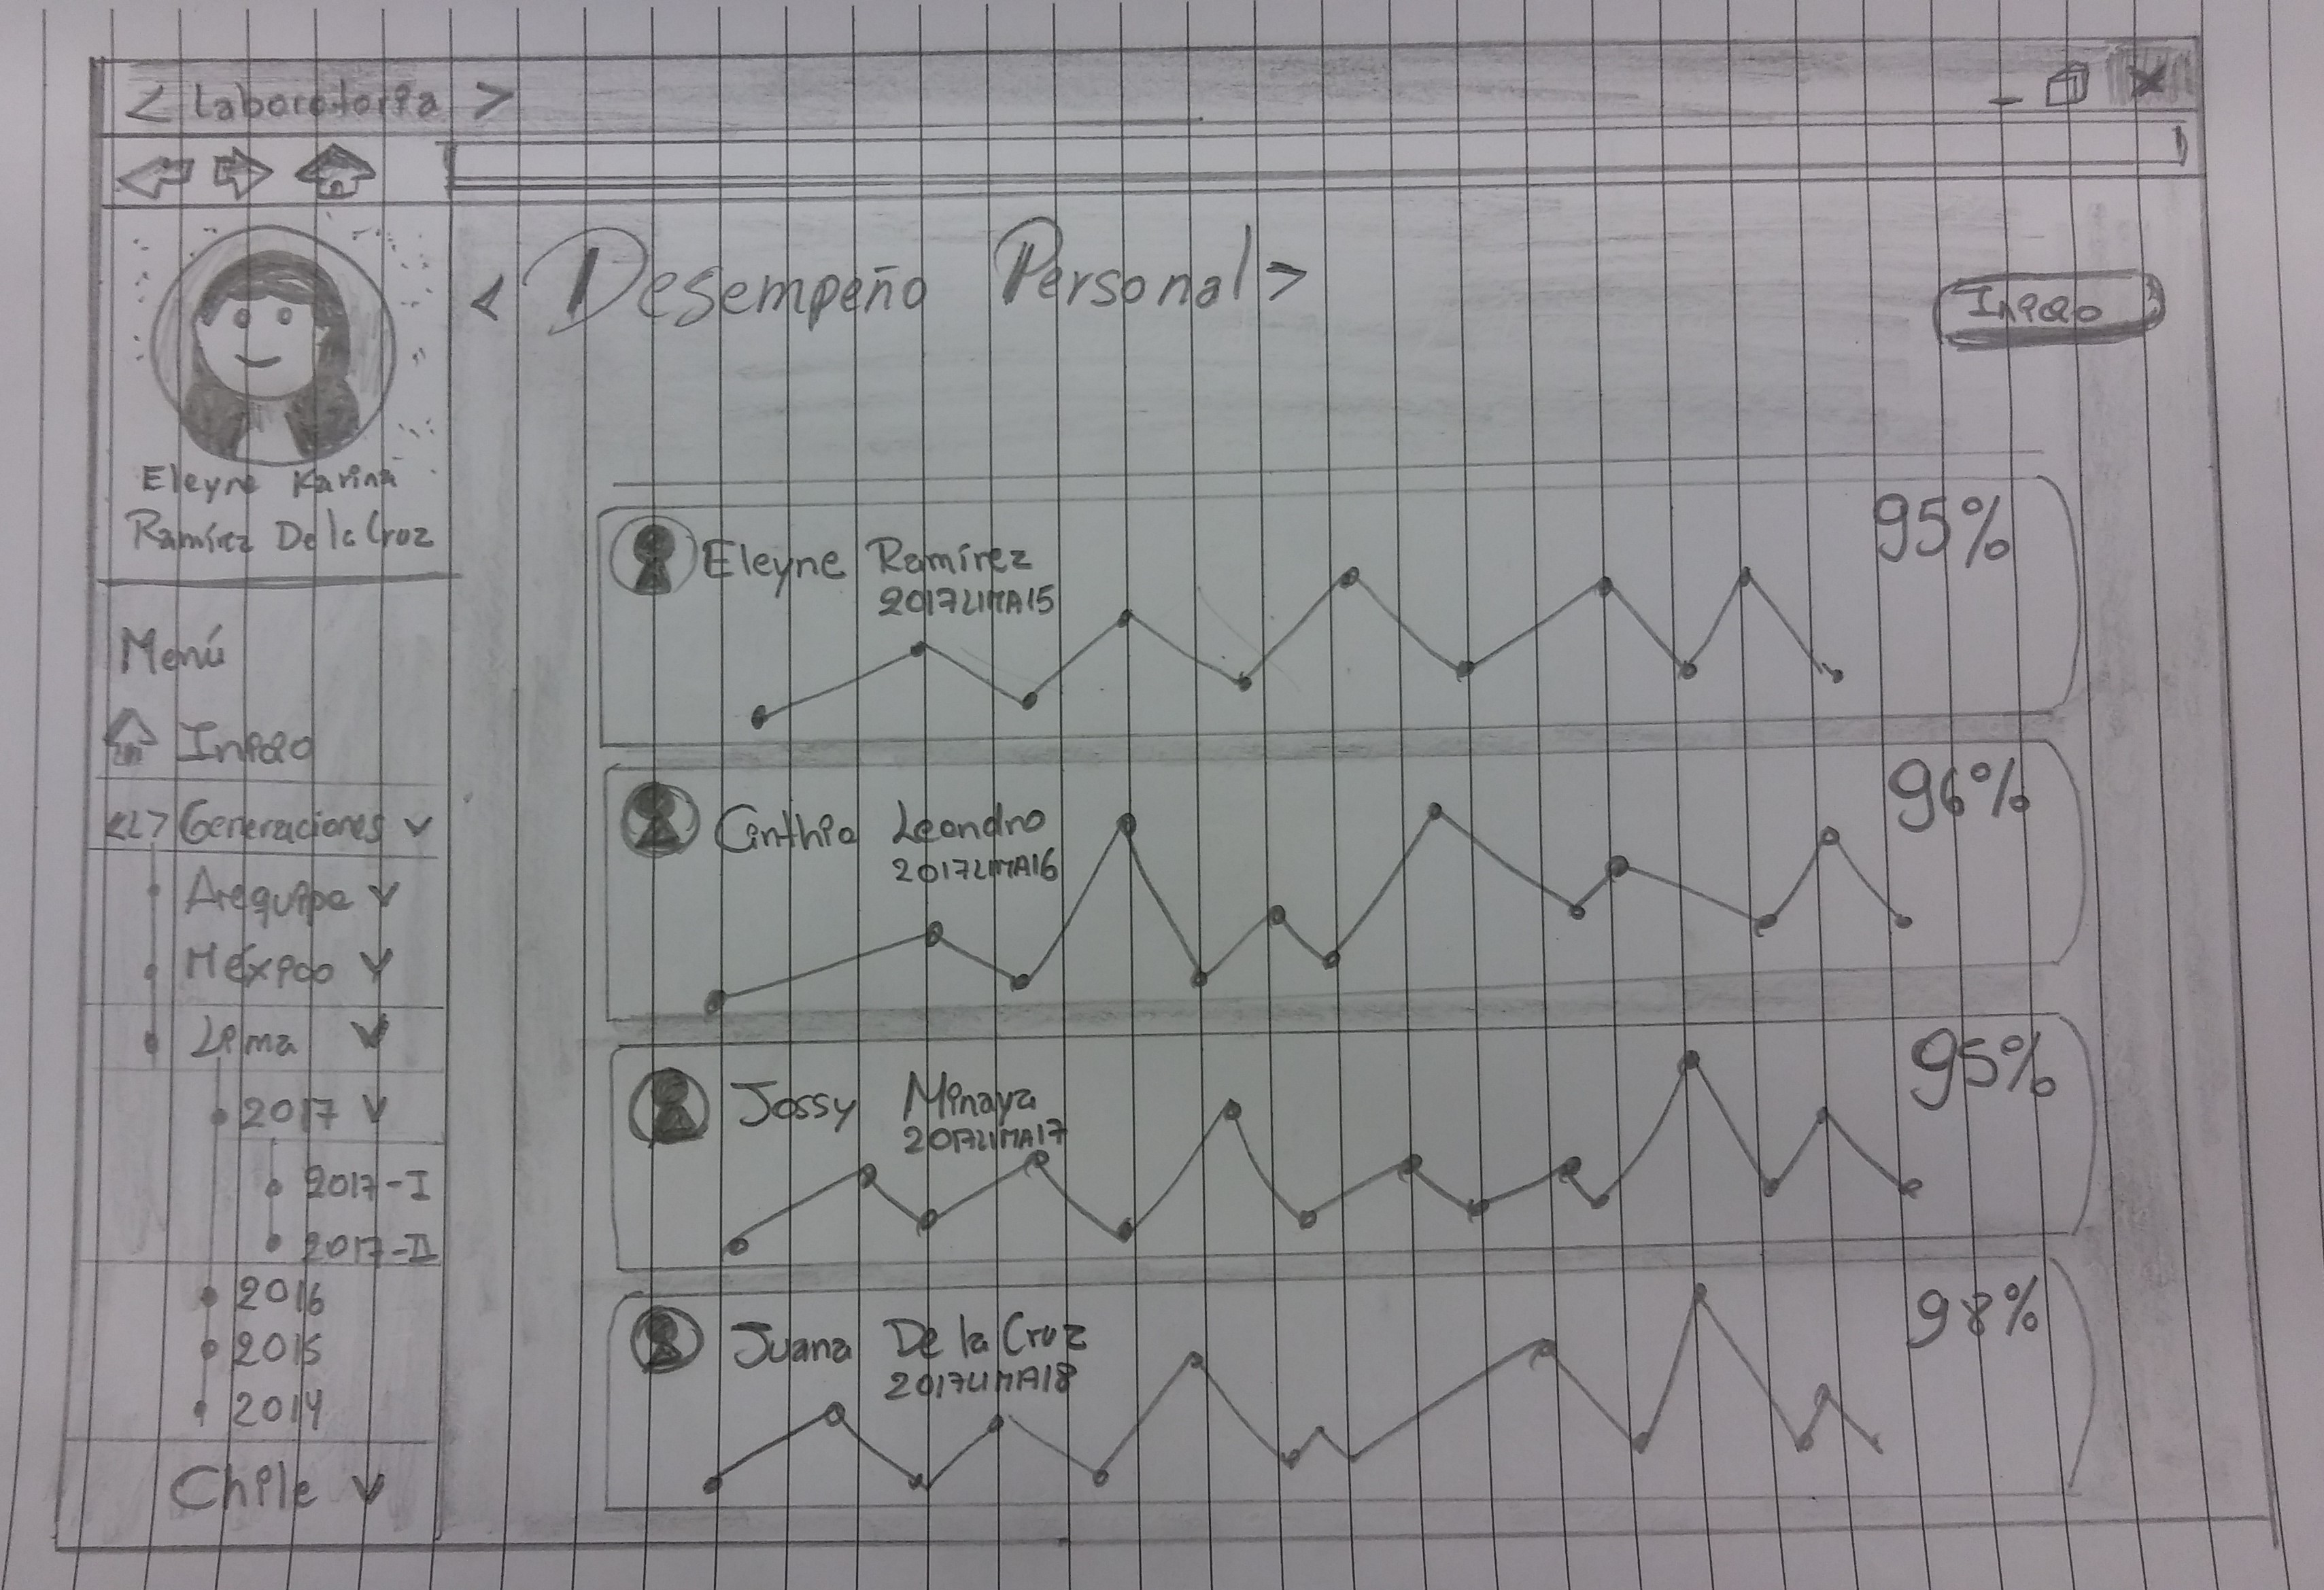 < Laboratoria >
< Desempeño Personal >
Inicio
Eleyne Karina
Ramírez De la Cruz
Menú
Inicio
<L> Generaciones
Arequipa
México
Lima
2017
2017-I
2017-II
2016
2015
2014
Chile
Eleyne Ramírez
2017LIMA15
95%
Cinthia Leandro
2017LIMA16
96%
Jossy Minaya
2017LIMA17
95%
Juana De la Cruz
2017LIMA18
98%